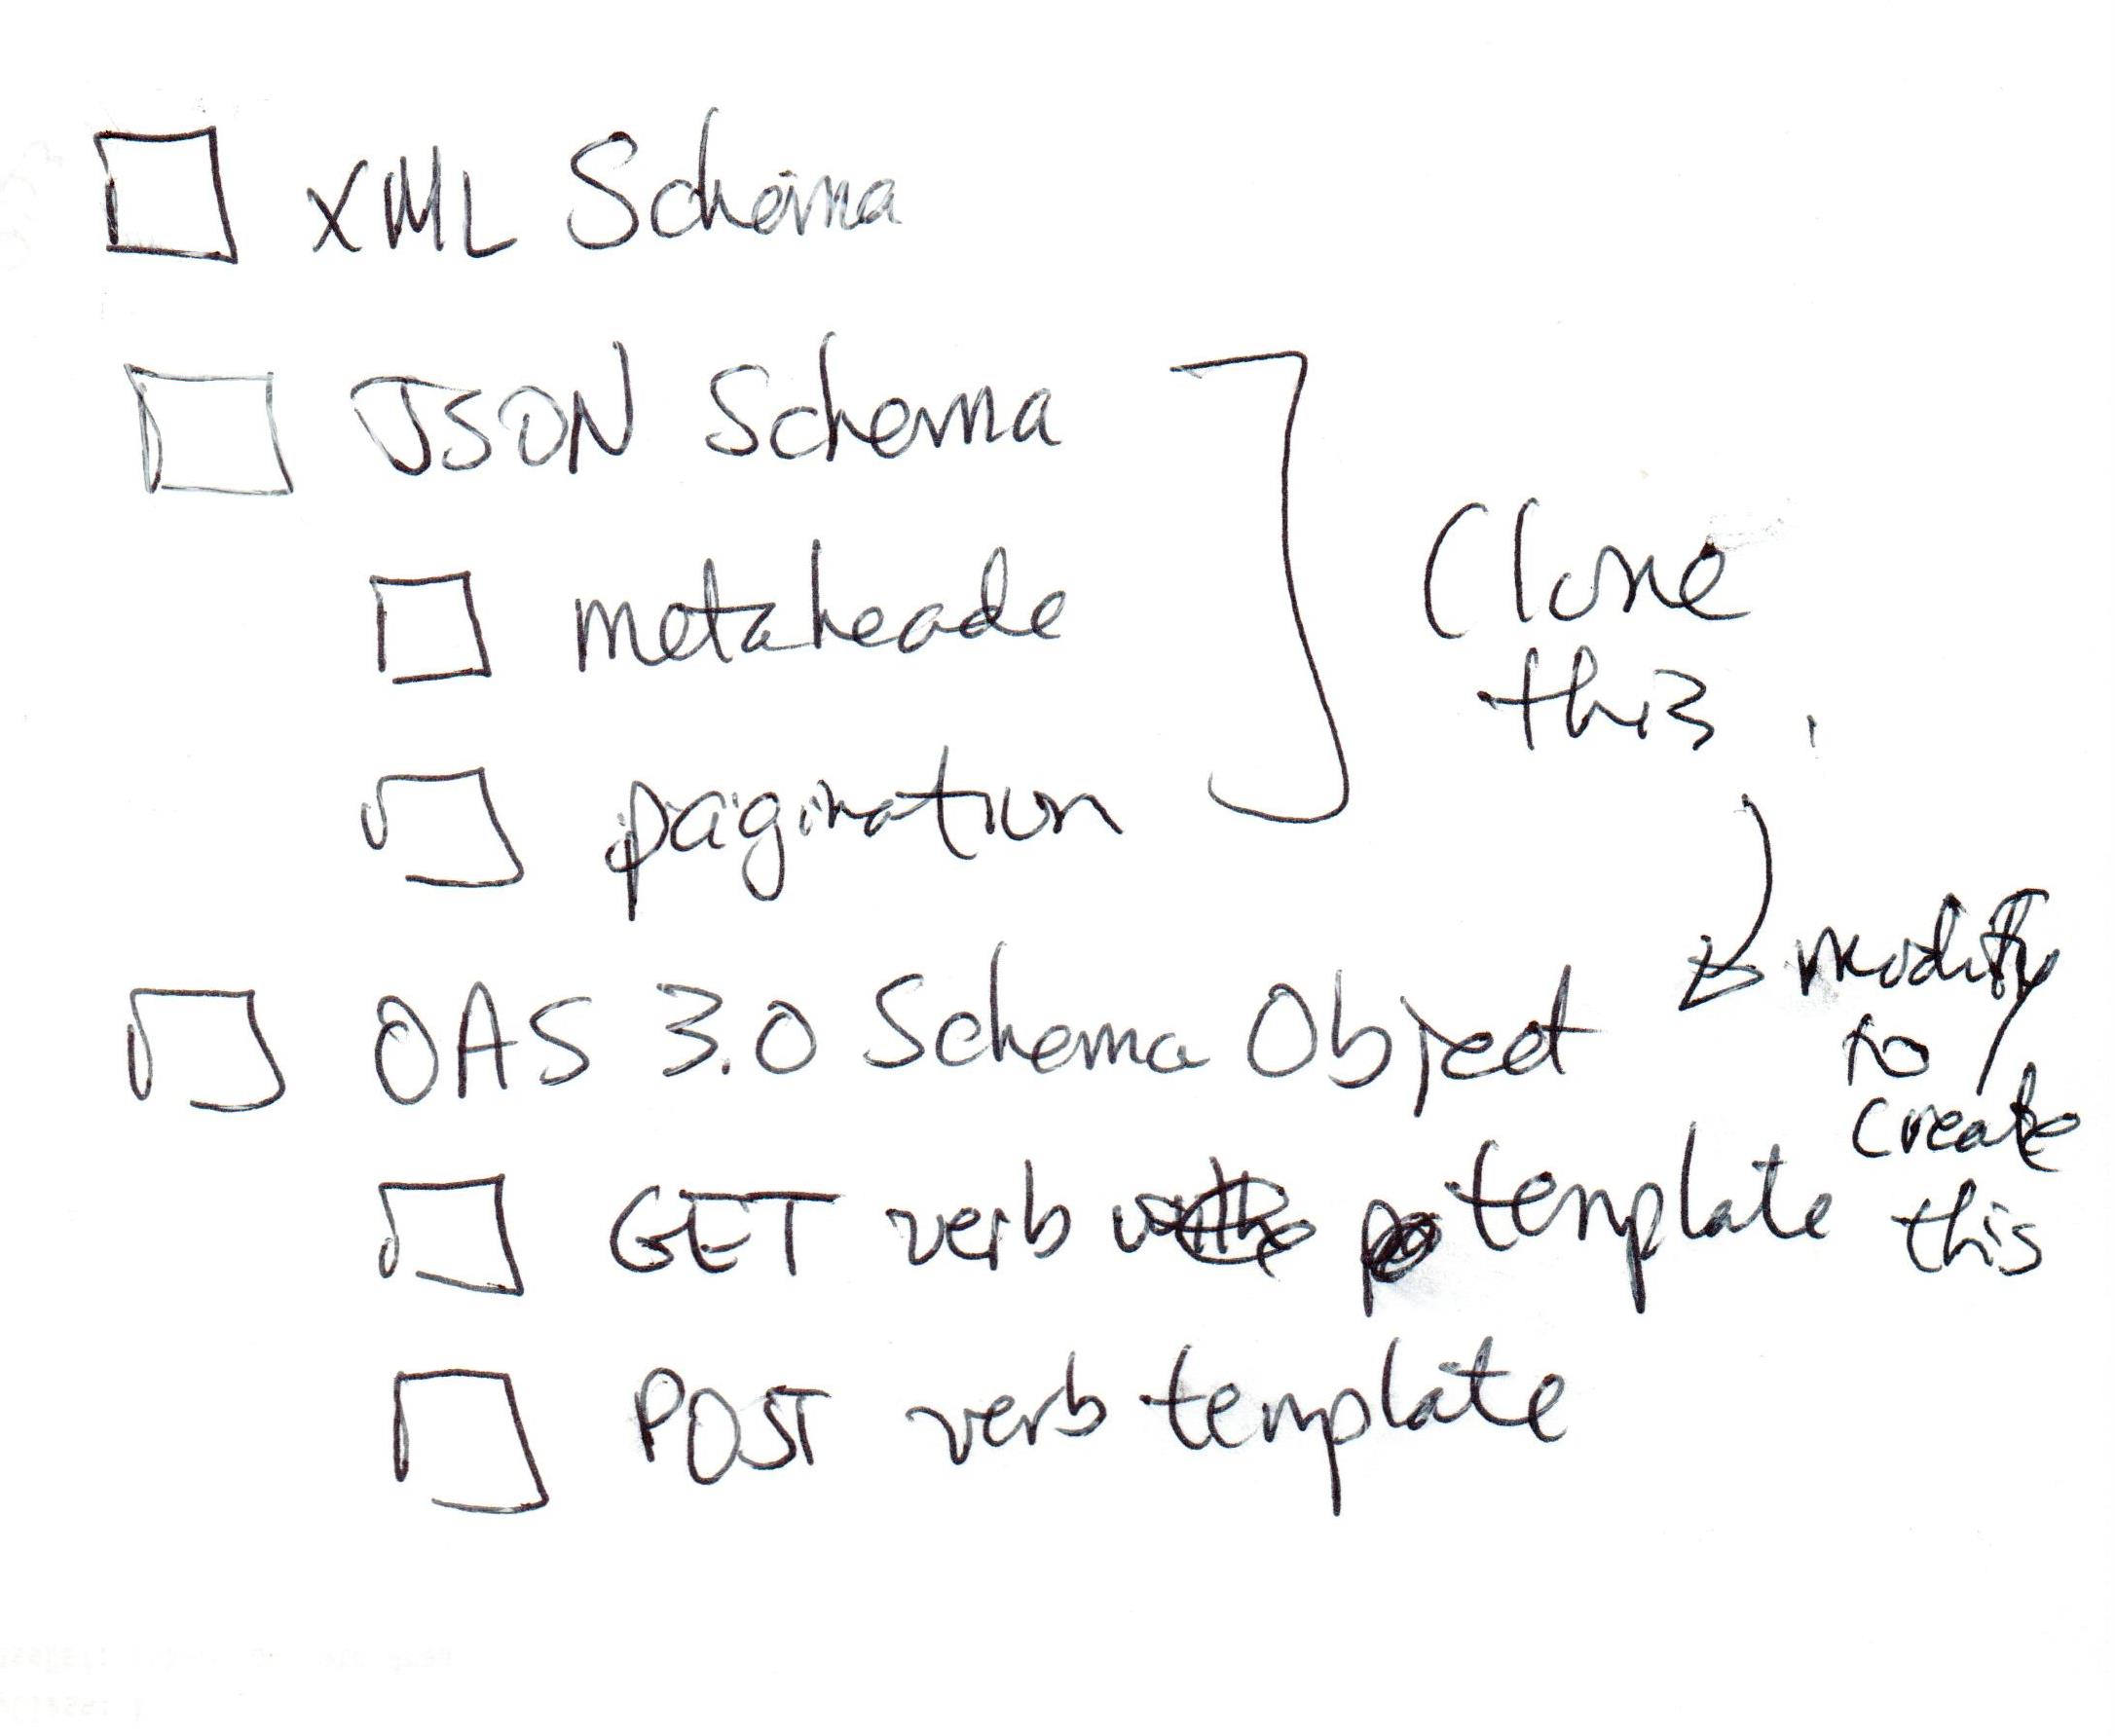 XML Schema
JSON Schema
metaheade
pagination
Clone
this.
OAS 3.0 Schema Object
GET verb template
POST verb template
modify
to
create
this